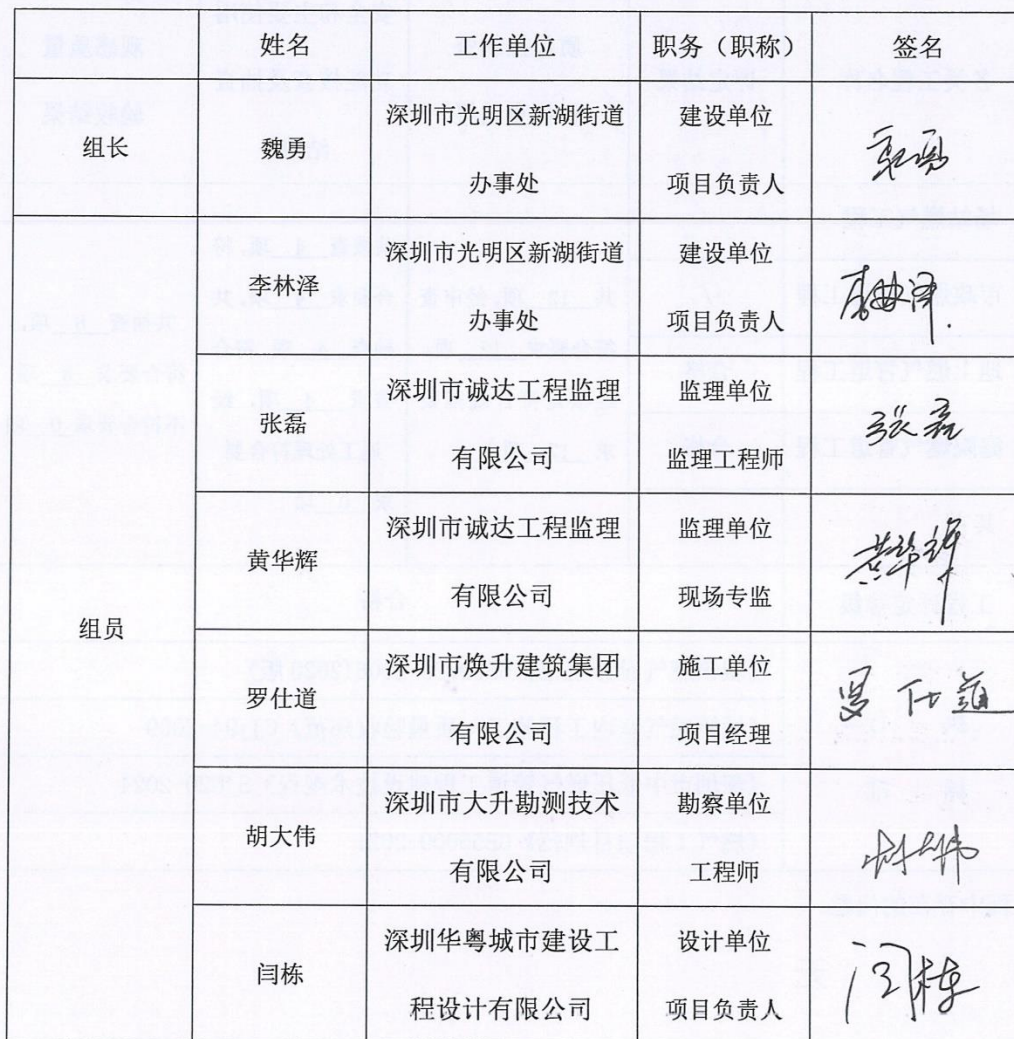 姓名 工作单位 职务（职称） 签名
组长 魏勇 深圳市光明区新湖街道办事处 建设单位项目负责人 魏勇
组员 李林泽 深圳市光明区新湖街道办事处 建设单位项目负责人 李林泽
张磊 深圳市诚达工程监理有限公司 监理单位监理工程师 张磊
黄华辉 深圳市诚达工程监理有限公司 监理单位现场专监 黄华辉
罗仕道 深圳市焕升建筑集团有限公司 施工单位项目经理 罗仕道
胡大伟 深圳市大升勘测技术有限公司 勘察单位工程师 胡大伟
闫栋 深圳华粤城市建设工程设计有限公司 设计单位项目负责人 闫栋